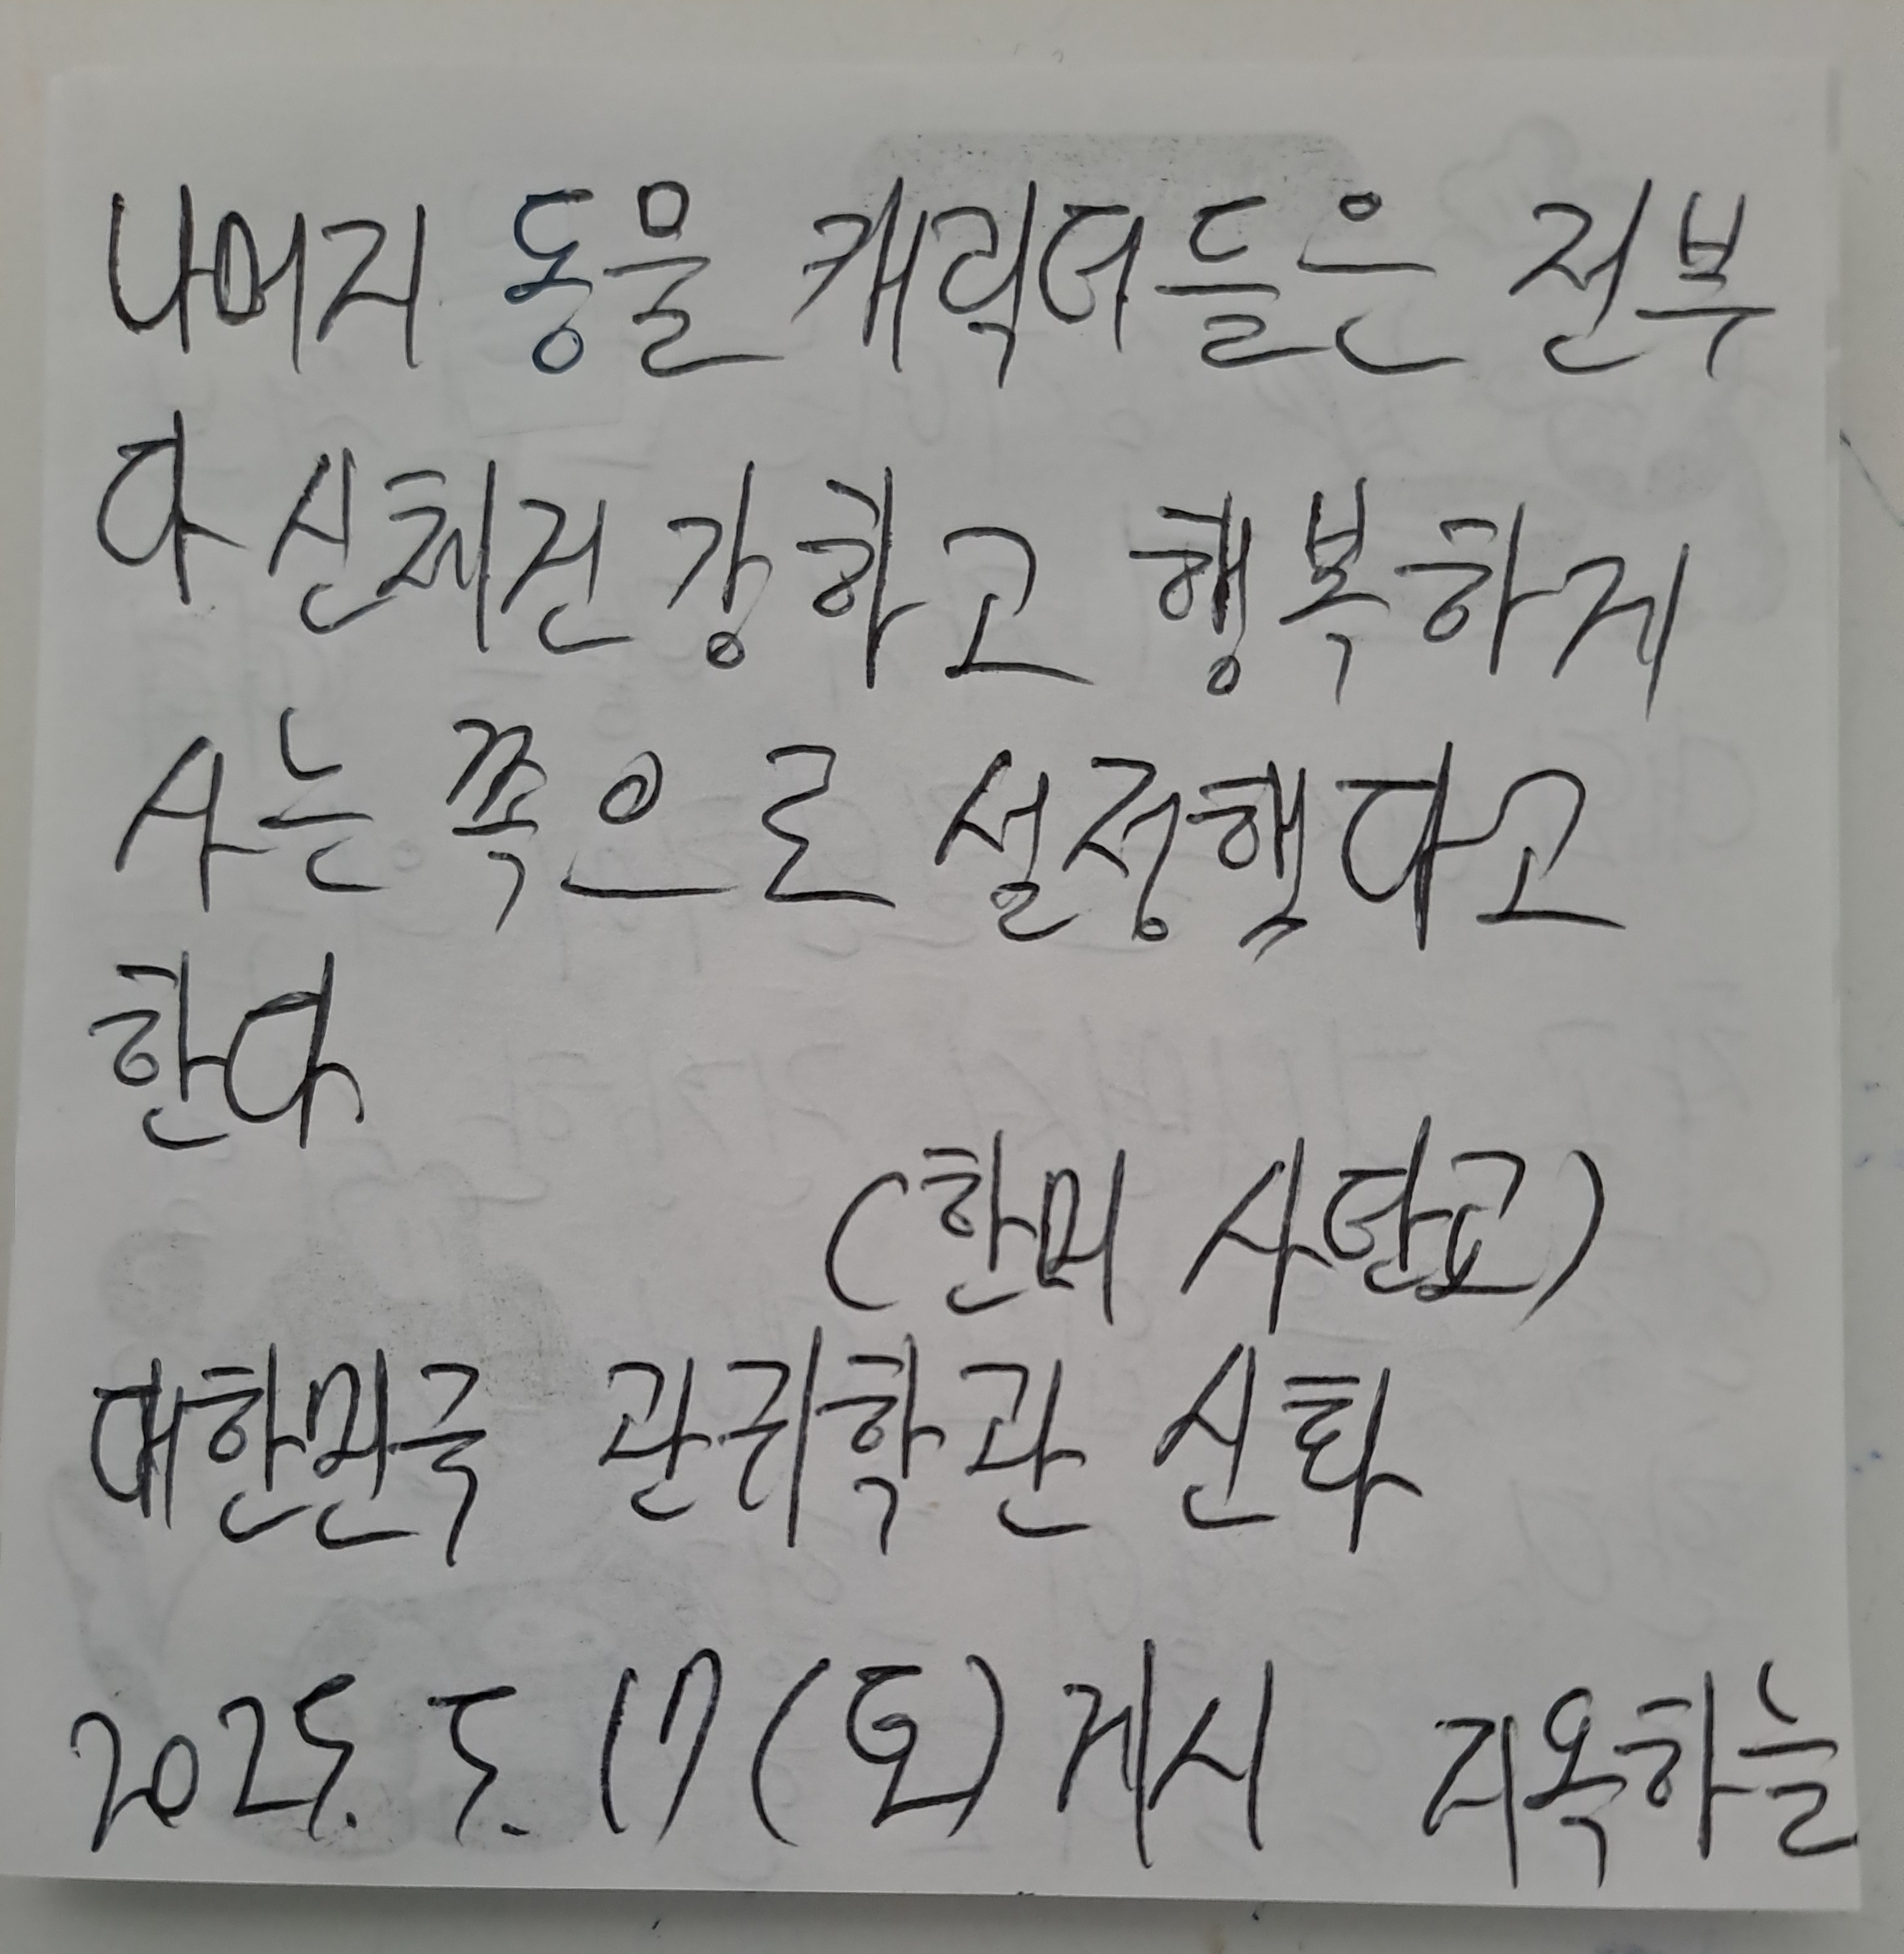 나머지 동물 캐릭터들은 전부
다 신체건강하고 행복하게
사는 쪽으로 설정했다고
한다
(한미 사탄교)
대한민국 관귀학관 신화
2025. 5. 17 (토) 게시 지옥하늘